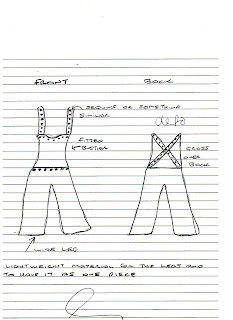 FRONT BACK
SEQUINS OR SOMETHING
SIMILAR
defo
FITTED
CROSS
OVER
BACK
WIDE LEG
LIGHTWEIGHT MATERIAL FOR THE LEGS AND
TO HAVE IT AS ONE PIECE